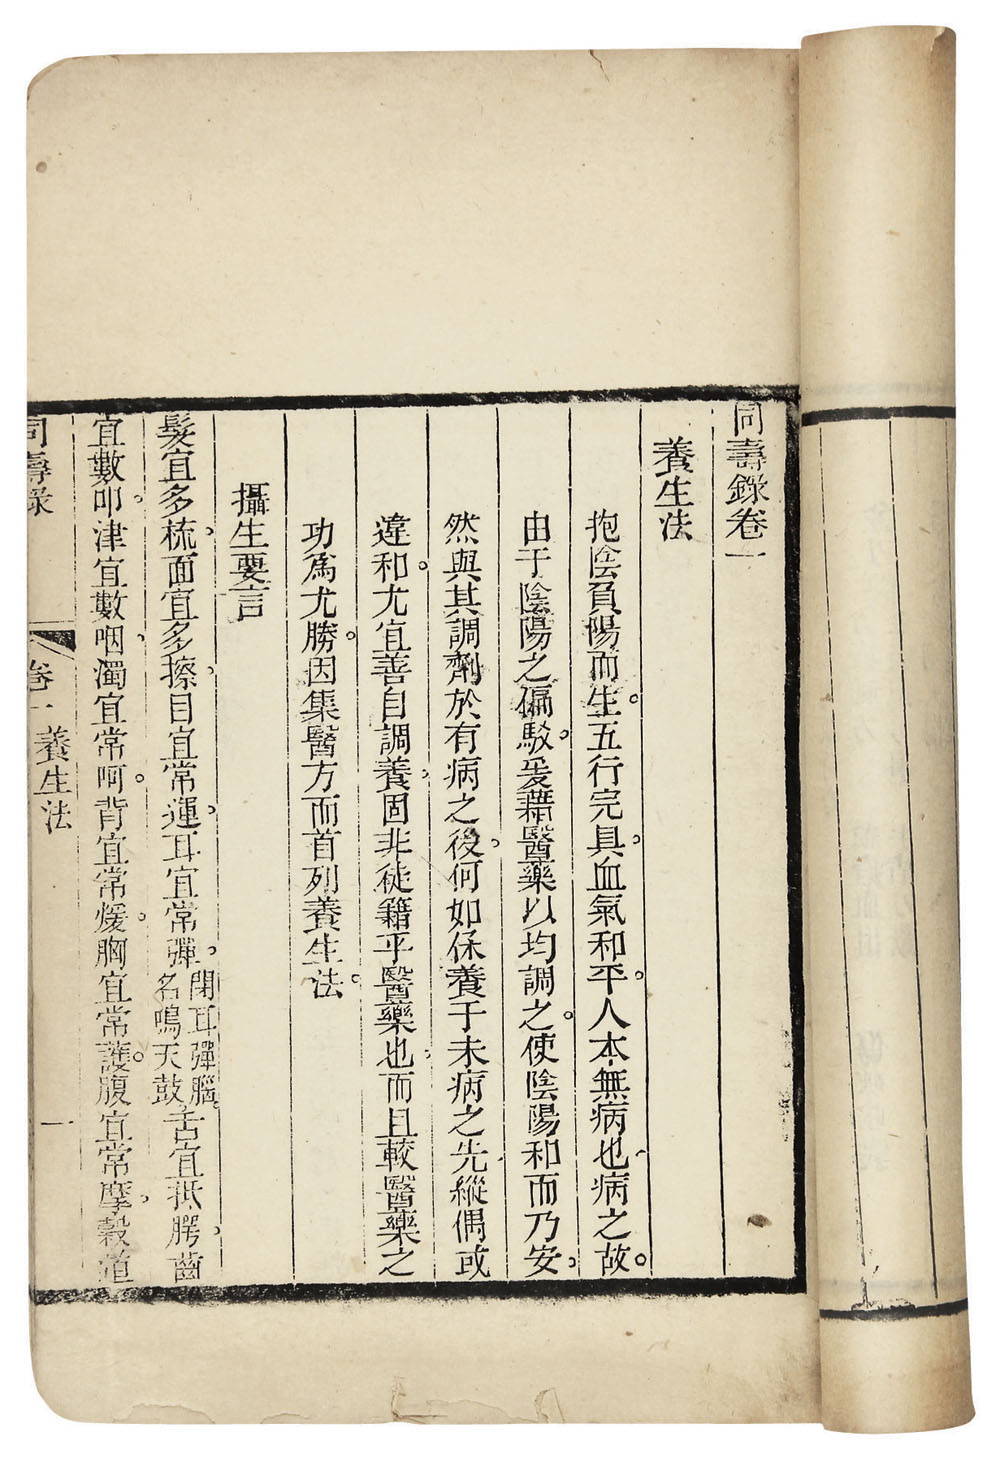 同壽錄卷一
養生法
抱陰負陽而生。五行完具。血氣和平。人本無病也。病之故。
由于陰陽之偏駁。爰藉醫藥以均調之。使陰陽和而乃安。
然與其調劑於有病之後。何如保養于未病之先。縱偶或
違和。尤宜善自調養。固非徒籍乎醫藥也。而且較醫藥之
功爲尤勝。因集醫方而首列養生法。
攝生要言
髮宜多梳。面宜多擦。目宜常運。耳宜常彈。閉耳彈腦。名鳴天鼓。舌宜抵腭。齒
宜數叩。津宜數咽。濁宜常呵。背宜常煖。胸宜常護。腹宜常摩。穀道
同壽錄 卷一 養生法 一